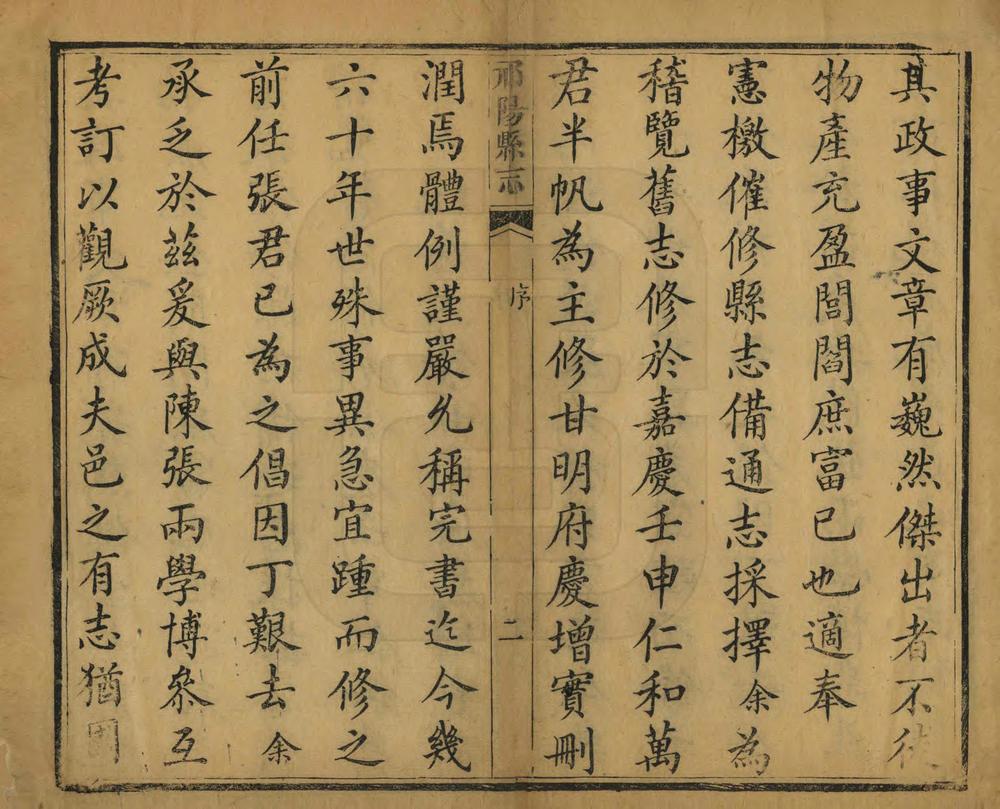 其政事文章有巍然傑出者不徒
物產充盈閭閻庶富已也適奉
憲檄催修縣志備通志採擇余為
稽覽舊志修於嘉慶壬申仁和萬
君半帆為主修甘明府慶增實刪
祁陽縣志
序
二
潤焉體例謹嚴允稱完書迄今幾
六十年世殊事異急宜踵而修之
前任張君已為之倡因丁艱去余
承乏於茲爰與陳張兩學博叅互
考訂以觀厥成夫邑之有志猶國